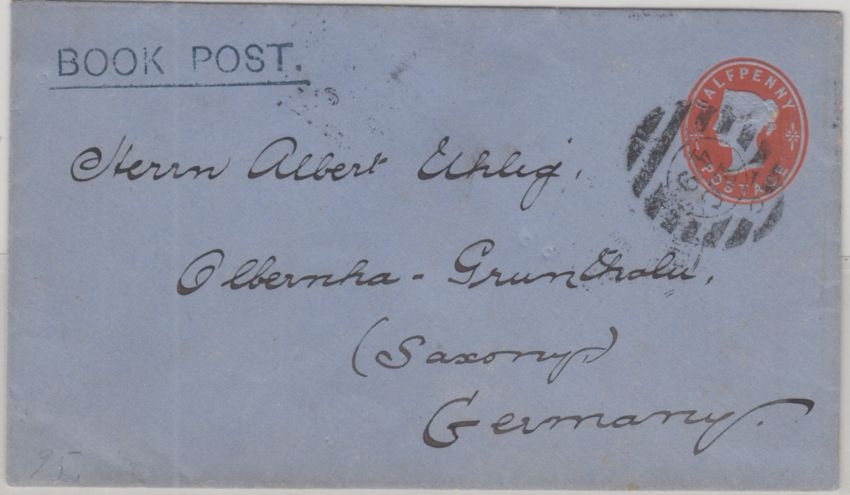 BOOK POST.
HALFPENNY
POSTAGE
Herrn Albert Uhlig,
Olbernha - Grunthalu,
(Saxony)
Germany.
95.